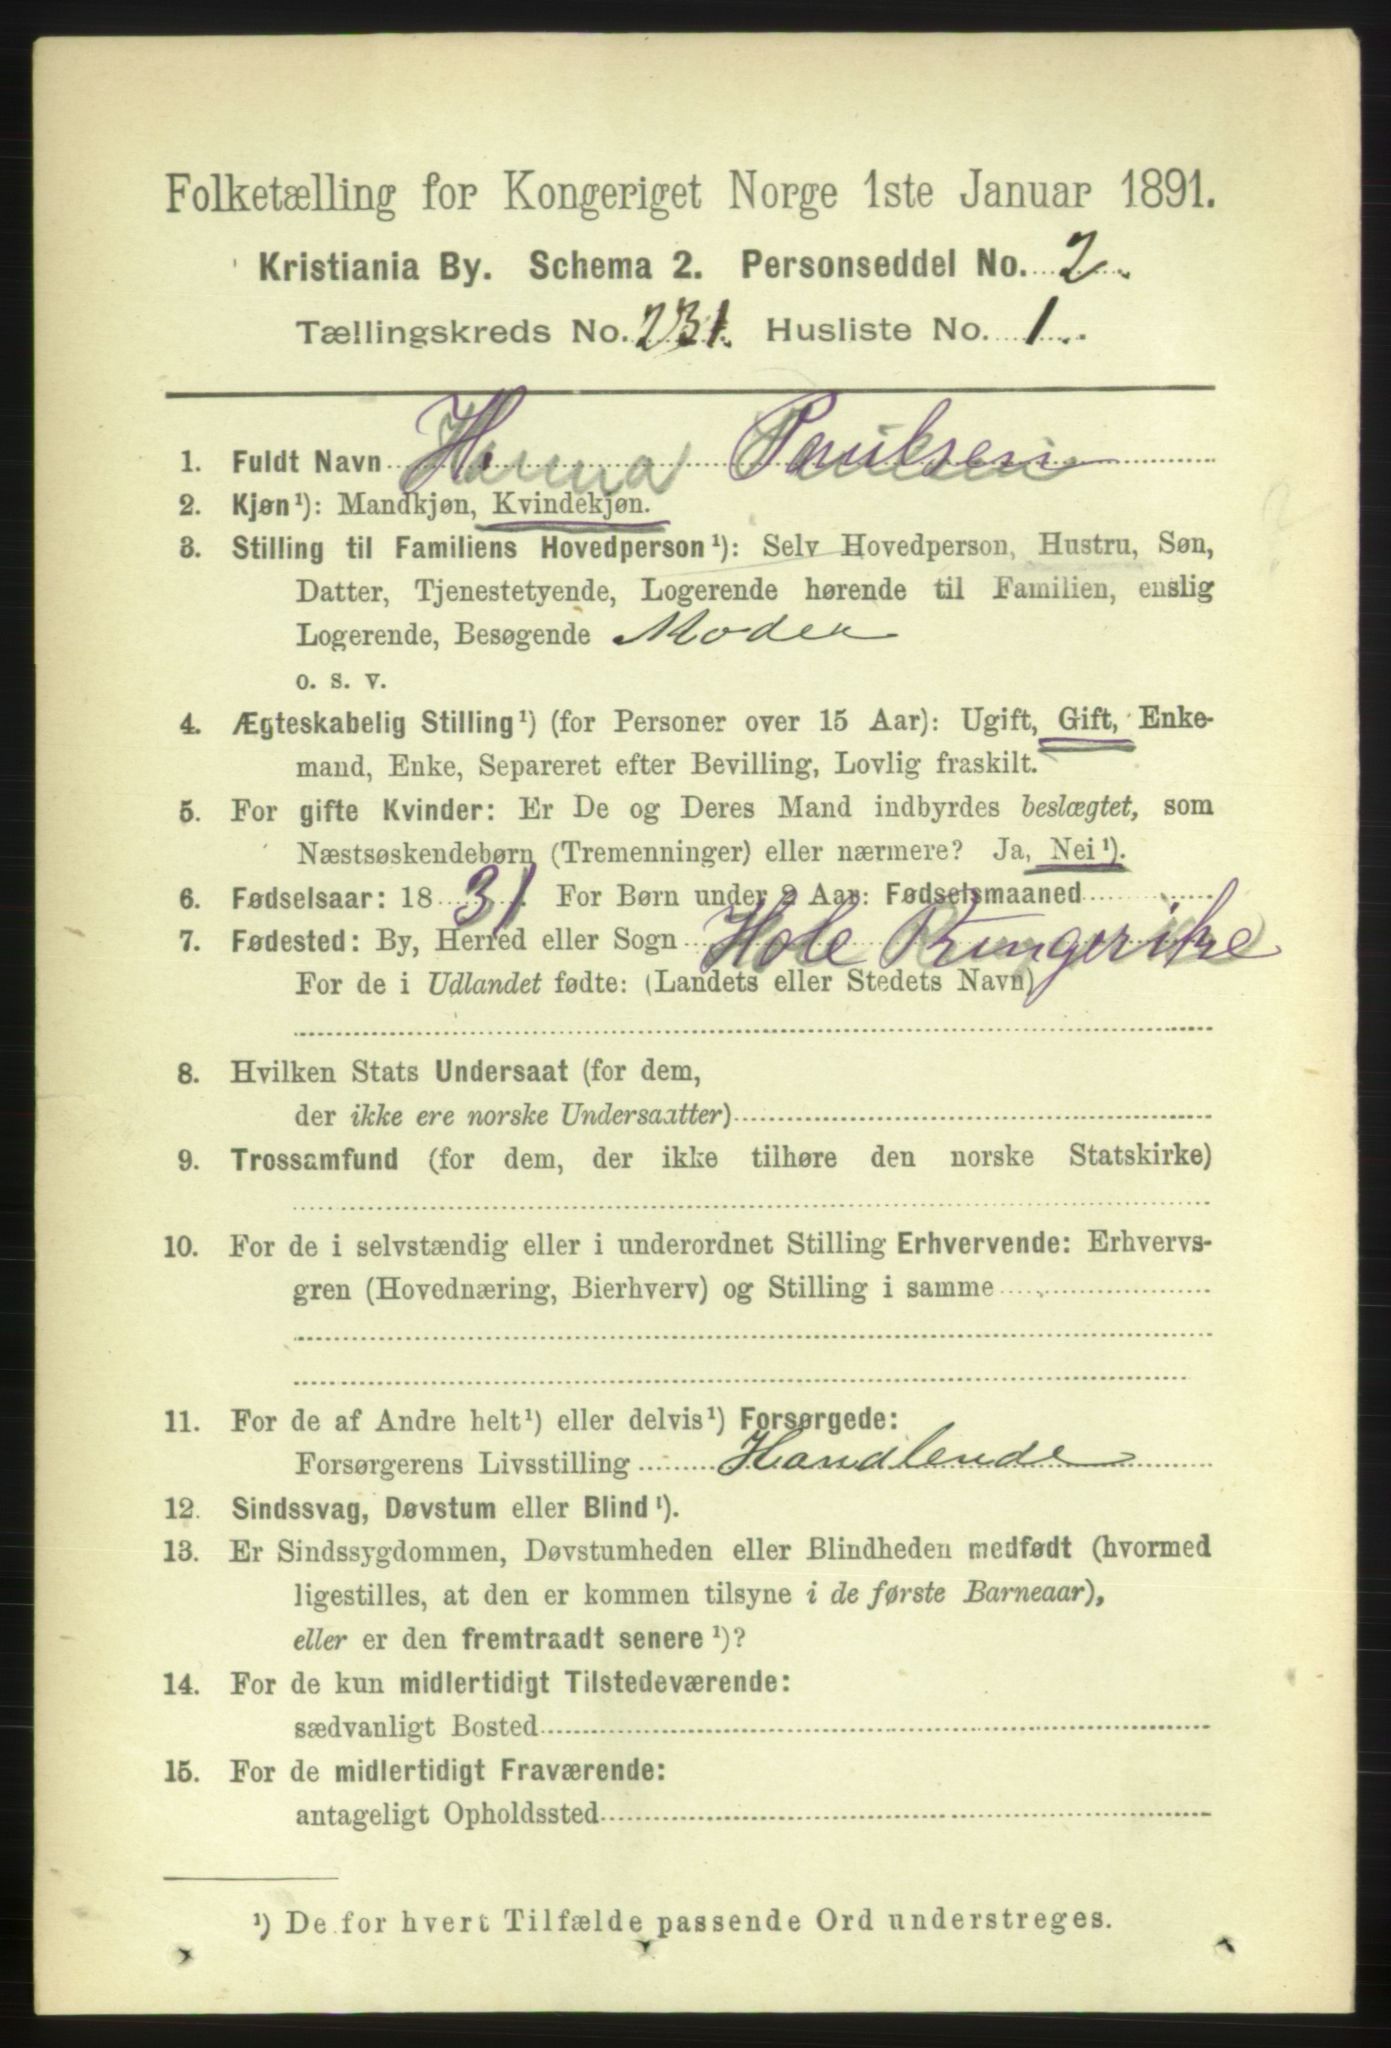 Folketælling for Kongeriget Norge 1ste Januar 1891.
Kristiania By. Schema 2. Personseddel No. 2.
Tællingskreds No. 231. Husliste No. 1.
1. Fuldt Navn Hanna Paulsen
2. Kjøn¹): Mandkjøn, Kvindekjøn.
3. Stilling til Familiens Hovedperson¹): Selv Hovedperson, Hustru, Søn,
Datter, Tjenestetyende, Logerende hørende til Familien, enslig
Logerende, Besøgende Moder
o. s. v.
4. Ægteskabelig Stilling¹) (for Personer over 15 Aar): Ugift, Gift, Enke-
mand, Enke, Separeret efter Bevilling, Lovlig fraskilt.
5. For gifte Kvinder: Er De og Deres Mand indbyrdes beslægtet, som
Næstsøskendebørn (Tremenninger) eller nærmere? Ja, Nei¹).
6. Fødselsaar: 1831. For Børn under 2 Aar: Fødselsmaaned
7. Fødested: By, Herred eller Sogn Hole Ringerike
For de i Udlandet fødte: (Landets eller Stedets Navn)
8. Hvilken Stats Undersaat (for dem,
der ikke ere norske Undersaatter)
9. Trossamfund (for dem, der ikke tilhøre den norske Statskirke)
10. For de i selvstændig eller i underordnet Stilling Erhvervende: Erhvervs-
gren (Hovednæring, Bierhverv) og Stilling i samme
11. For de af Andre helt¹) eller delvis¹) Forsørgede:
Forsørgerens Livsstilling Handlende
12. Sindssvag, Døvstum eller Blind¹).
13. Er Sindssygdommen, Døvstumheden eller Blindheden medfødt (hvormed
ligestilles, at den er kommen tilsyne i de første Barneaar),
eller er den fremtraadt senere¹)?
14. For de kun midlertidigt Tilstedeværende:
sædvanligt Bosted
15. For de midlertidigt Fraværende:
antageligt Opholdssted
¹) De for hvert Tilfælde passende Ord understreges.